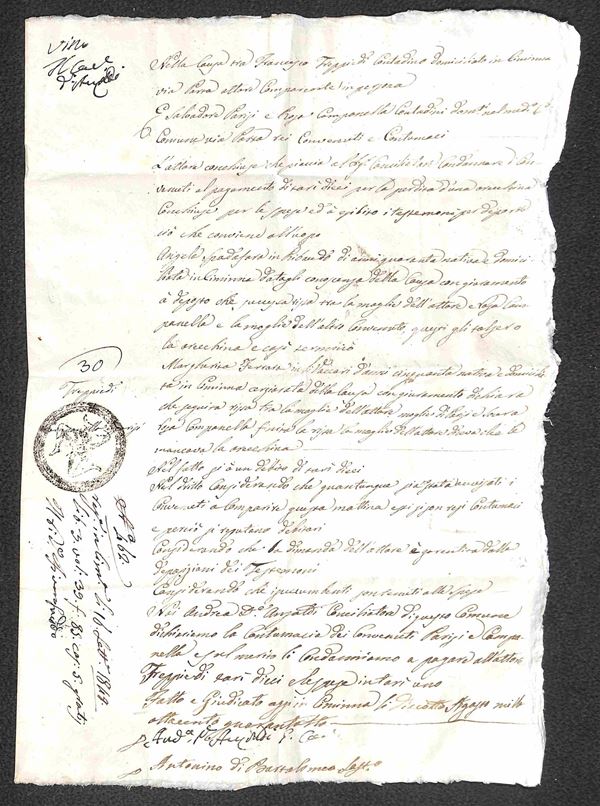 Visto
Nella Causa tra Francesco Treppiedi Contadino domiciliato in Ciminna
via Parra attore Comparente in persona
E Salvadore Parisi e Rosa Campanella Contadini
Comune via Parra rei Convenuti e Contumaci
L'attore conchiuse che piaccia al Sig. Conciliatore Condannare i Con
venuti al pagamento di tarì dieci per la perdita d'una orecchina
Conchiuse per le spese ed à esibito i testemoni per deporre
ciò che conviene all'uopo
Angela Spadafora in di anni quaranta nativa e domici
liata in Ciminna datagli conoscenza della Causa con giuramento
à deposto che successa rissa tra la moglie dell'attore e Rosa Cam
panella e la moglie dell'altro Convenuto, questi gli tolsero
la orecchina e così terminò
Margherita Ferrara in d'anni cinquanta nativa e domicilia
ta in Ciminna della Causa con giuramento dichiara
che seguita rissa tra la moglie dell'attore
Campanella finita la rissa la moglie dell'attore diceva che le
mancava la orecchina
Nel fatto si è un debito di tarì dieci
Nel dritto Considerando che quantunque avvisati i
Convenuti a Comparire questa mattina essi si son resi Contumaci
e perciò si reputano debitori
Considerando che la dimanda dell'attore è garentita dalla
deposizioni dei Testemoni
Considerando che i soccumbenti son tenuti alle spese
Noi Andrea Conciliatore di questo Comune
dichiariamo la Contumacia dei Convenuti Parisi e Campa
nella e li Condanniamo a pagare all'attore
Treppiedi tarì dieci e le spese in tarì uno
Fatto e Giudicato oggi in Ciminna li Diciotto Agosto mille
ottocento quarantotto
Antonino di Bartolomeo
30
Treppiedi
Parisi
N.º 462
1848
Lib. 3 vol. 32 f. 85 cas. 5 gratis